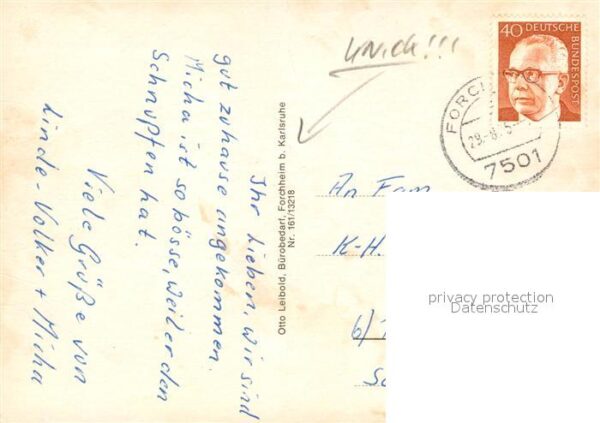 Ihr Lieben, wir sind
gut zuhause angekommen.
Micha ist so bösse, weil er den
Schnupfen hat.
Viele Grüße von
Linde-Volker + Micha
Otto Leibold, Bürobedarf, Forchheim b. Karlsruhe
Nr. 161/13218
40 DEUTSCHE
BUNDESPOST
FORCH
7501
An Fam.
K-H.
privacy protection
Datenschutz